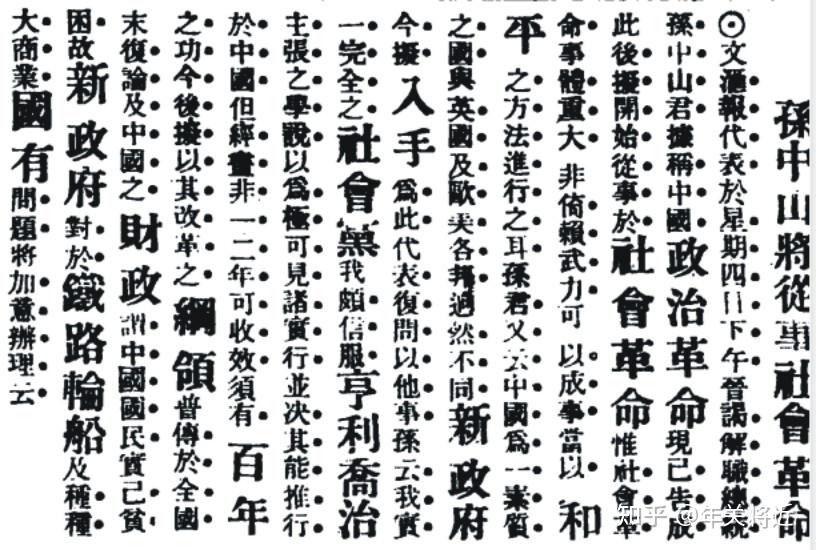 孫中山將從事社會革命
⊙文滙報代表於星期四日下午晉謁解職總統
孫中山君據稱中國政治革命現已告成
此後擬開始從事於社會革命惟社會革
命事體重大非倚賴武力可以成事當以和
平之方法進行之耳孫君又云中國爲一素質
之國與英國及歐美各邦逈然不同新政府
今擬入手爲此代表復問以他事孫云我實
一完全之社會黨我頗信服亨利喬治
主張之學說以爲極可見諸實行並决其能推行
於中國但經畫非一二年可收效須有百年
之功今後擬以其改革之綱領普傳於全國
末復論及中國之財政謂中國國民實已貧
困故新政府對於鐵路輪船及種種
大商業國有問題將加意辦理云
知乎 @年美將近